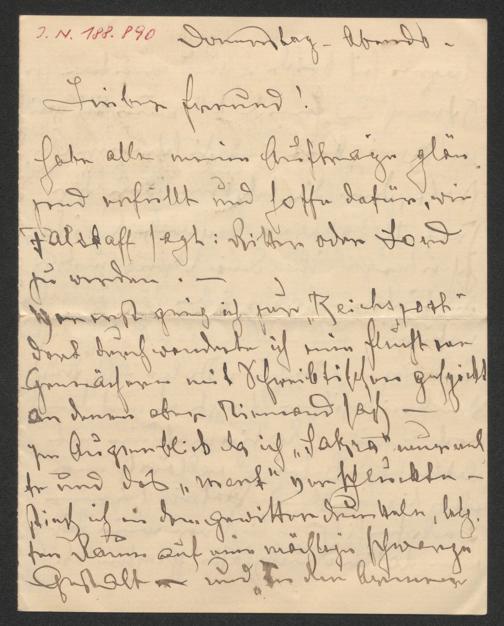 J. N. 188.890
Donnerstag - Abends -
Lieber Freund!
Habe alle meine Aufträge glän-
zend erfüllt und hoffe dafür, wie
Falstaff sagt: Ritter oder Lord
zu werden. —
Vorerst ging ich zur „Reichspost"
dort durchwanderte ich eine Flucht von
Gemächern mit Schreibtischen
an denen aber Niemand saß —
Im Augenblick da ich „Sakra"
und das „ment" verschluckte -
stieß ich in dem gewitterdunkeln, letz-
ten Raum auf eine mächtige schwarze
Gestalt — und